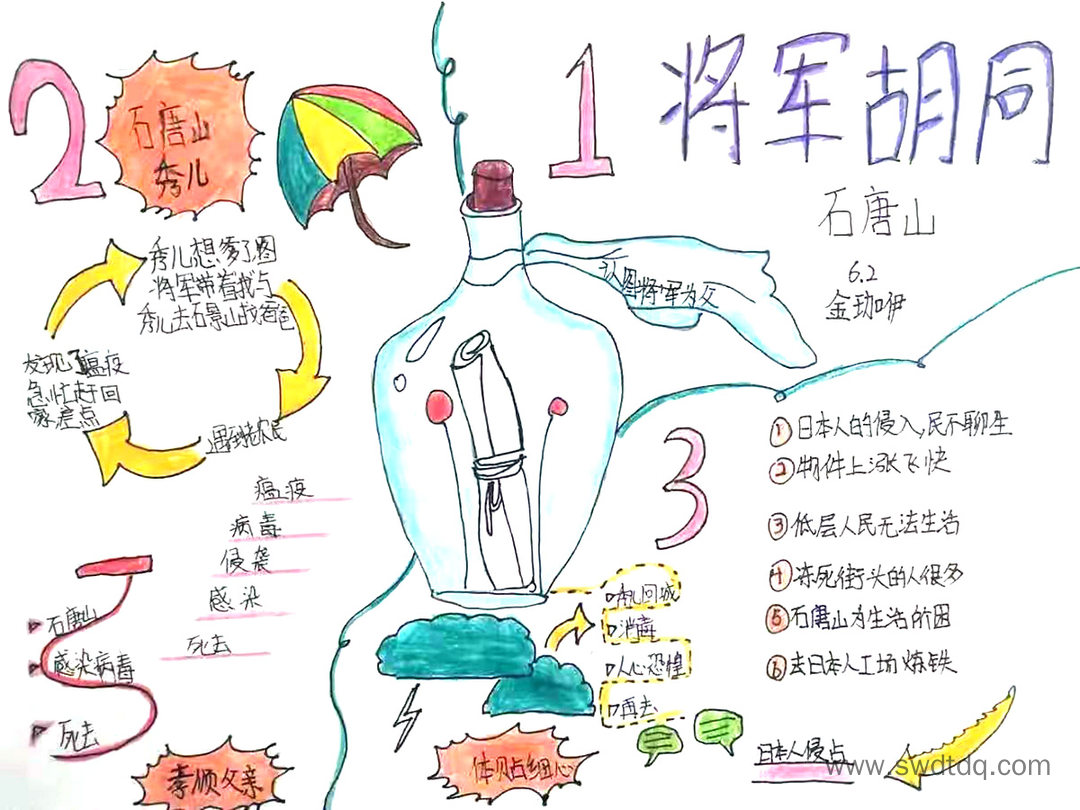 1
将军胡同
石唐山
6.2
认图将军为父
2
石唐山
秀儿
秀儿想爹了图
将军带着我与
秀儿去石景山找爸爸
遇到老农民
发现了瘟疫
急忙赶回
家差点
瘟疫
病毒
侵袭
感染
死去
石唐山
感染病毒
死去
孝顺父亲
体贴细心
回城
消毒
人心恐惶
再去
3
①日本人的侵入,民不聊生
②物件上涨飞快
③低层人民无法生活
④冻死街头的人很多
⑤石唐山为生活所困
⑥去日本人工场炼铁
日本人侵占
www.swdtdq.com